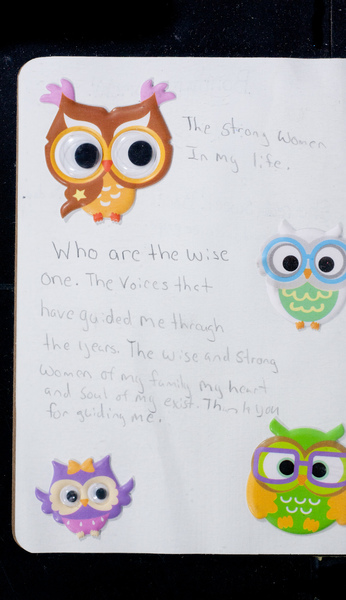 The strong Women
In my life.
Who are the wise
one. The Voices that
have guided me through
the years. The wise and strong
women of my family my heart
and soul of my exist. Thank you
for guiding me.